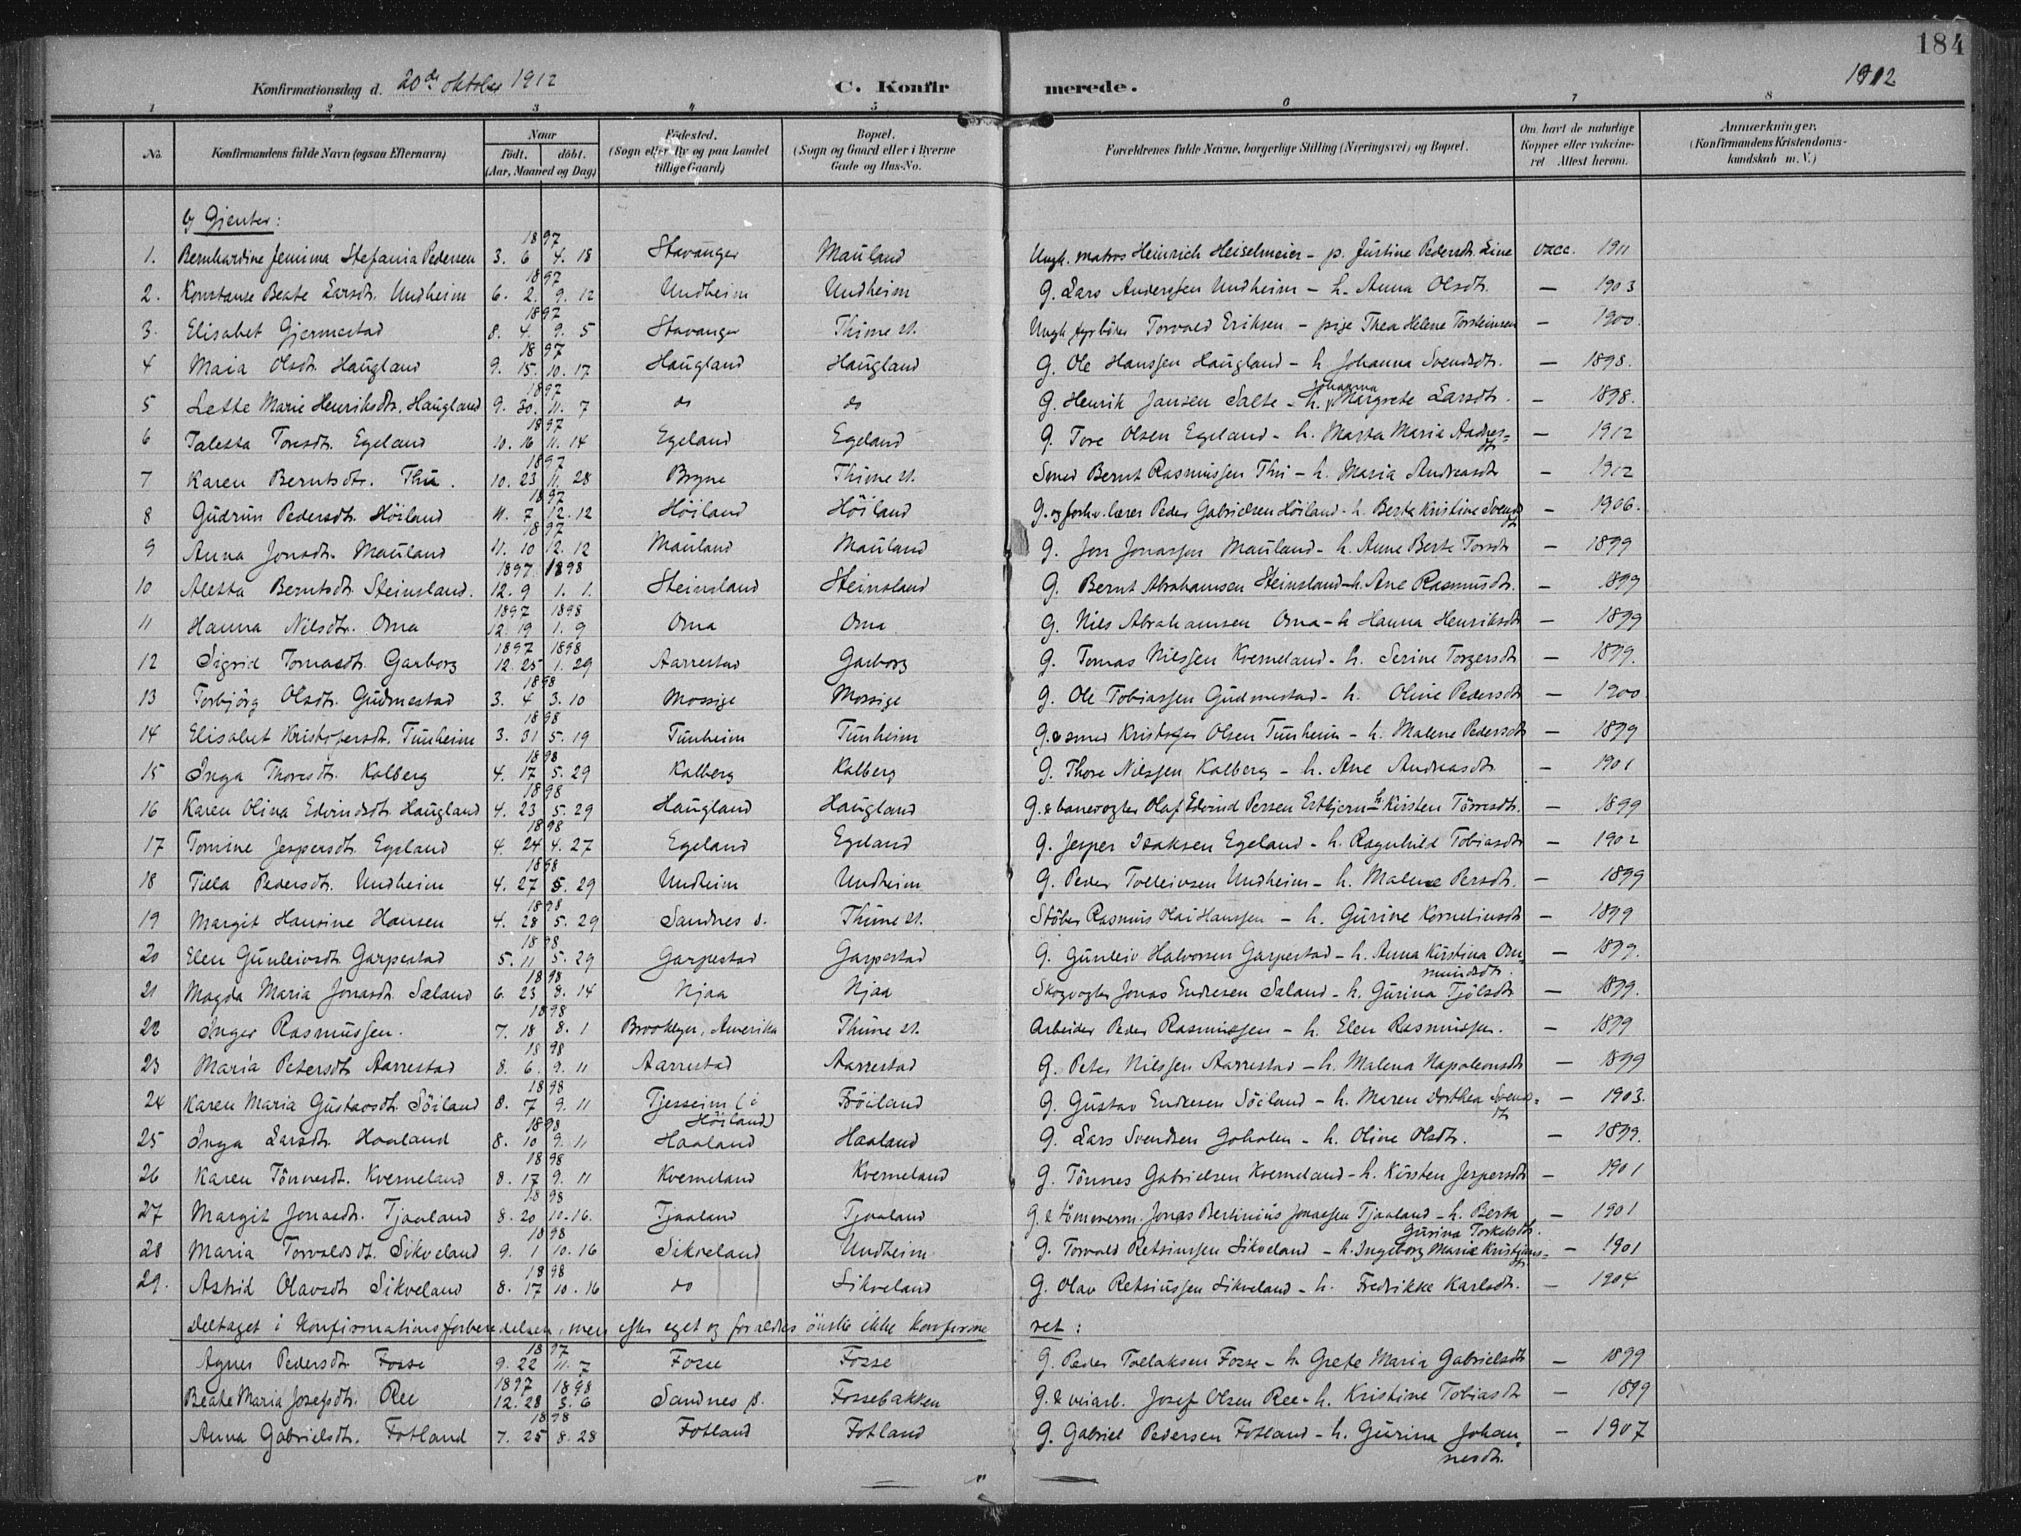 184
Konfirmationsdag d. 20de oktober 1912 C. Konfirmerede. 1912
1 2 3 4 5 6 7 8
No. Konfirmandens fulde Navn (ogsaa Efternavn) Naar født. døbt. (Aar, Maaned og Dag) Fødested. (Sogn eller By og paa Landet tillige Gaard) Bopæl. (Sogn og Gaard eller i Byerne Gade og Hus-No. Forældrenes fulde Navne, borgerlige Stilling (Næringsvei) og Bopæl. Om havt de naturlige Kopper eller vaksineret Attest herom. Anmærkninger. (Konfirmandens Kristendomskundskab m. V.)
b) Gjenter:
1. Bernhardine Jemima Stefania Pedersen 1897 3. 6 4. 18 Stavanger Mauland Ungk. matros Heinrich Heiselmeier - p. Justine Pedersdt. Line vacc. 1911
2. Konstanse Beate Larsdt. Undheim 1897 6. 2. 9. 12 Undheim Undheim G. Lars Anderssen Undheim - h. Anna Olsdt. — 1903
3. Elisabet Gjermestad 1897 8. 4. 9. 5 Stavanger Thime st. Ungk. fyrbøter Torvald Eriksen - pige Thea Helene Torsteinsen — 1900.
4 Maia Olsdt. Haugland 1897 9. 15. 10. 17 Haugland Haugland G. Ole Hanssen Haugland - h. Johanna Svendsdt. — 1898.
5 Lette Marie Henriksdt. Haugland 1897 9. 30. 11. 7 do do G. Henrik Jansen Salte - h. Johanna Margrete Larsdt. — 1898.
6 Taletta Toresdt. Egeland 1897 10. 16 11. 14 Egeland Egeland G. Tore Olsen Egeland - h. Marta Maria Aadnesdt — 1912
7 Karen Berntsdt. Thu. 1897 10. 23 11. 28 Bryne Thime st. Smed Bernt Rasmussen Thu - h. Maria Andreasdt — 1912
8 Gudrun Pedersdt. Höiland 1897 11. 7 12. 12 Höiland Höiland G. og forh.v. lærer Peder Gabrielsen Höiland - h. Berte Kristine Svendsdt — 1906.
9 Anna Jonsdt. Mauland 1897 11. 10 12. 12 Mauland Mauland G. Jon Jonassen Mauland - h. Anne Berte Torsdt — 1899
10 Aletta Berntsdt. Steinsland. 1897 1898 12. 9 1. 1. Steinsland Steinsland G. Bernt Abrahamsen Steinsland - h. Ane Rasmusdt. — 1899
11 Hanna Nilsdt. Oma 1897 1898 12. 19 1. 9 Oma Oma G. Nils Abrahamsen Oma - h. Hanna Henriksdt — 1899
12 Sigrid Tomasdt. Garborg 1897 1898 12. 25 1. 29 Aarrestad Garborg G. Tomas Nilssen Kverneland - h. Serine Torgersdt — 1899.
13 Torbjörg Olsdt. Gudmestad 1898 3. 4 3. 10 Mossige Mossige G. Ole Tobiassen Gudmestad - h. Oline Pedersdt — 1900
14 Elisabet Kristofersdt. Tunheim 1898 3. 31 5. 19 Tunheim Tunheim G. & smed Kristofer Olsen Tunheim - h. Malene Pedersdt — 1899
15 Inga Thoresdt. Kalberg 1898 4. 17 5. 29 Kalberg Kalberg G. Thore Nilssen Kalberg - h. Ane Andreasdt. — 1901
16 Karen Olina Edvindsdt. Haugland 1898 4. 23 5. 29 Haugland Haugland G. & banevogter Olaf Edvind Persen Estbjern - h. Kirsten Törresdt. — 1899
17 Tomine Jespersdt. Egeland 1898 4. 24 4. 27 Egeland Egeland G. Jesper Isaksen Egeland - h. Ragnhild Tobiasdt — 1902
18 Tilla Pedersdt. Undheim 1898 4. 27 5. 29 Undheim Undheim G. Peder Tolleivsen Undheim - h. Malene Persdt. — 1899
19 Margit Hansine Hansen 1898 4. 28 5. 29 Sandnes s. Thime st. Støber Rasmus Olai Hanssen - h. Gurine Korneliusdt — 1899
20 Elen Gunleivsdt. Garpestad 1898 5. 11 5. 29 Garpestad Garpestad G. Gunleiv Halvorsen Garpestad - h. Anna Kirstina Ommundsdt. — 1899.
21 Magda Maria Jonasdt. Sæland 1898 6. 23 8. 14 Njaa Njaa Skogvogter Jonas Endresen Sæland - h. Gurina Tjölsdt — 1899.
22 Inger Rasmussen. 1898 7. 18 8. 1 Brooklyn, Amerika Thime st. Arbeider Peder Rasmussen - h. Elen Rasmussen. — 1899
23 Maria Petersdt. Aarrestad 1898 8. 6. 9. 11 Aarrestad Aarrestad G. Peter Nilssen Aarrestad - h. Malena Napoleonsdt — 1899
24 Karen Maria Gustavsdt. Söiland 1898 8. 7 9. 11 Tjesseim (i Höiland) Söiland G. Gustav Endresen Söiland - h. Maren Dorthea Svendsdt — 1903.
25 Inga Larsdt. Haaland 1898 8. 10 9. 11 Haaland Haaland G. Lars Svendsen - h. Oline Olsdt. — 1899.
26 Karen Tönnesdt. Kverneland 1898 8. 17 9. 11 Kverneland Kverneland G. Tönnes Gabrielsen Kverneland - h. Kirsten Jespersdt — 1901
27 Margit Jonasdt. Tjaaland 1898 8. 20 10. 16. Tjaaland Tjaaland G. & tømmerm. Jonas Bertinius Jonassen Tjaaland - h. Berta Gurina Torkelsdt. — 1901
28 Maria Torvaldsdt. Sikveland 1898 9. 1 10. 16 Sikveland Undheim G. Torvald Retsiussen Sikveland - h. Ingeborg Marie Kristjansdt — 1901
29. Astrid Olavsdt Sikveland 1898 8. 17 10. 16 do Sikveland G. Olav Retsiussen Sikveland - h. Fredrikke Karlsdt. — 1904
Deltaget i konfirmationsforberedelsen, men efter eget og forældres önske ikke konfirmeret:
Agnes Pedersdt Fosse 1897 9. 22 11. 7 Fosse Fosse G. Peder Tollaksen Fosse - h. Grete Maria Gabrielsdt — 1899
Beate Maria Josefsdt. Ree 1897 1898 12. 28 3. 6 Sandnes s. Fossebakken G. & veiarb. Josef Olsen Ree - h. Kristine Tobiasdt — 1899
Anna Gabrielsdt. Fotland 1898 7. 25 8. 28 Fotland Fotland G. Gabriel Pedersen Fotland - h. Gurina Johannesdt. — 1907